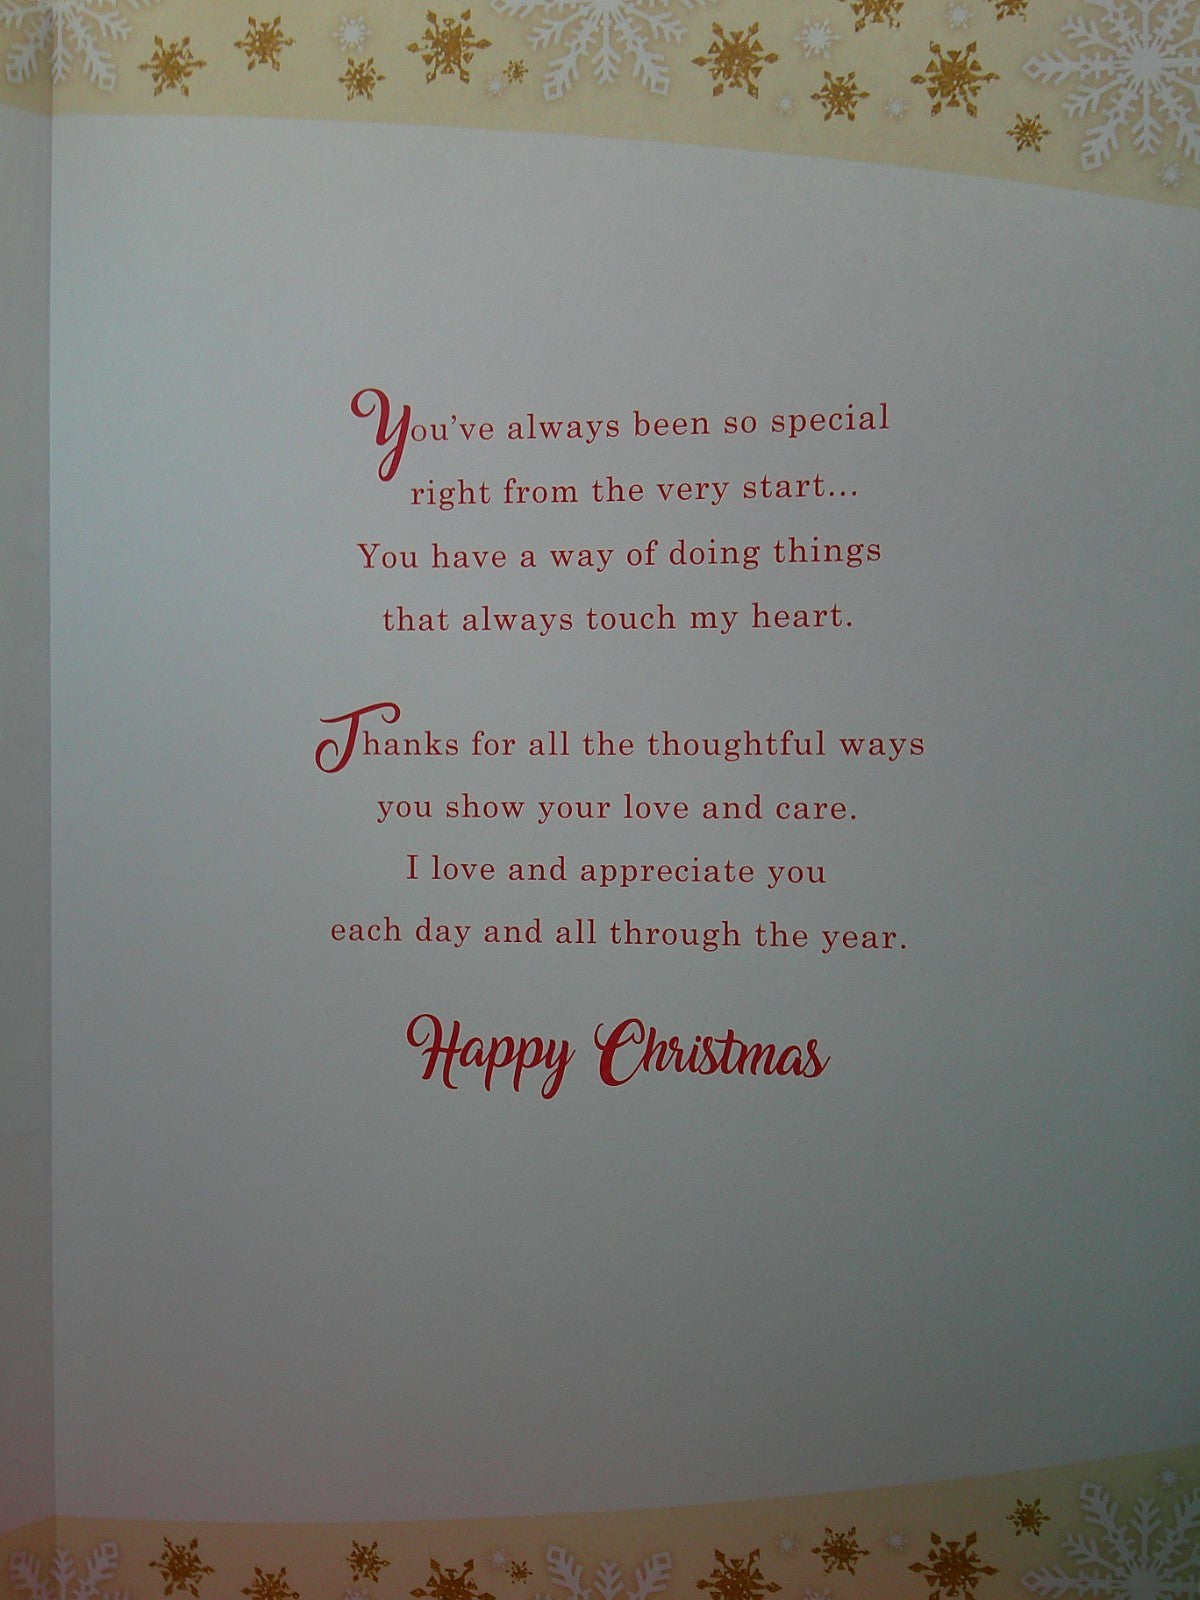 You've always been so special
right from the very start...
You have a way of doing things
that always touch my heart.
Thanks for all the thoughtful ways
you show your love and care.
I love and appreciate you
each day and all through the year.
Happy Christmas